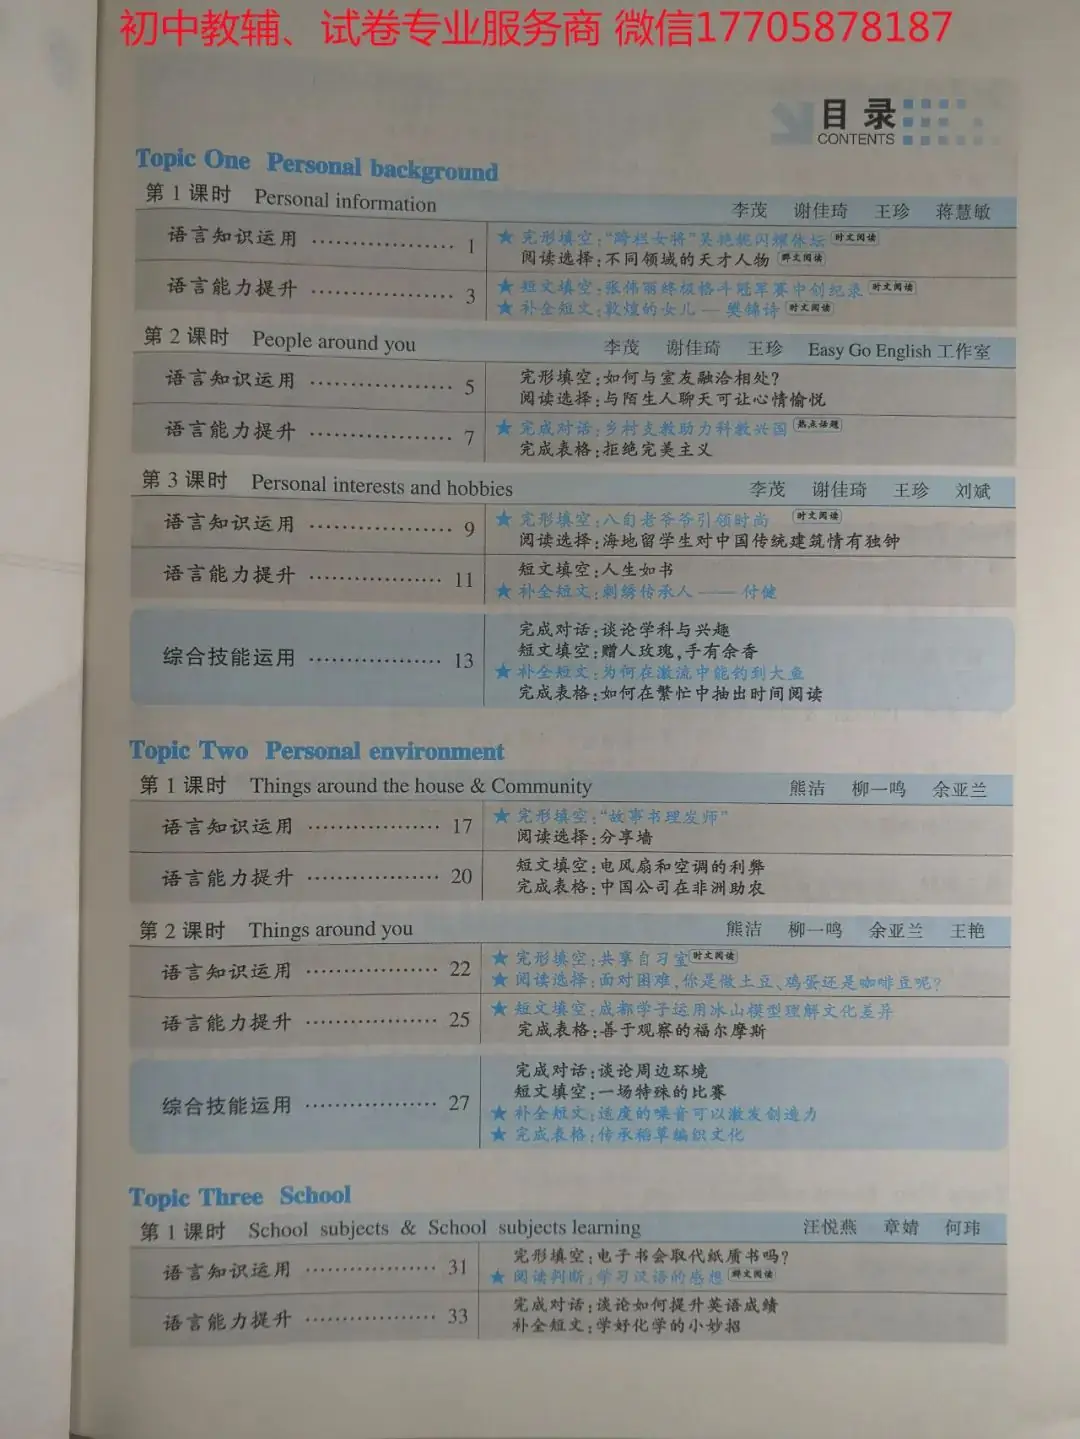 初中教辅、试卷专业服务商 微信17705878187
目录
CONTENTS
Topic One Personal background
第 1 课时 Personal information 李茂 谢佳琦 王珍 蒋慧敏
语言知识运用 ………………… 1
★ 完形填空:“跨栏女将”吴艳妮闪耀体坛 时文阅读
阅读选择:不同领域的天才人物 群文阅读
语言能力提升 ………………… 3
★ 短文填空:张伟丽终极格斗冠军赛中创纪录 时文阅读
★ 补全短文:敦煌的女儿——樊锦诗 时文阅读
第 2 课时 People around you 李茂 谢佳琦 王珍 Easy Go English 工作室
语言知识运用 ………………… 5
完形填空:如何与室友融洽相处?
阅读选择:与陌生人聊天可让心情愉悦
语言能力提升 ………………… 7
★ 完成对话:乡村支教助力科教兴国 热点话题
完成表格:拒绝完美主义
第 3 课时 Personal interests and hobbies 李茂 谢佳琦 王珍 刘斌
语言知识运用 ………………… 9
★ 完形填空:八旬老爷爷引领时尚 时文阅读
阅读选择:海地留学生对中国传统建筑情有独钟
语言能力提升 ………………… 11
短文填空:人生如书
★ 补全短文:刺绣传承人——付健
综合技能运用 ………………… 13
完成对话:谈论学科与兴趣
短文填空:赠人玫瑰,手有余香
★ 补全短文:为何在激流中能钓到大鱼
完成表格:如何在繁忙中抽出时间阅读
Topic Two Personal environment
第 1 课时 Things around the house & Community 熊洁 柳一鸣 余亚兰
语言知识运用 ………………… 17
★ 完形填空:“故事书理发师”
阅读选择:分享墙
语言能力提升 ………………… 20
短文填空:电风扇和空调的利弊
完成表格:中国公司在非洲助农
第 2 课时 Things around you 熊洁 柳一鸣 余亚兰 王艳
语言知识运用 ………………… 22
★ 完形填空:共享自习室 时文阅读
★ 阅读选择:面对困难,你是做土豆、鸡蛋还是咖啡豆呢?
语言能力提升 ………………… 25
★ 短文填空:成都学子运用冰山模型理解文化差异
完成表格:善于观察的福尔摩斯
综合技能运用 ………………… 27
完成对话:谈论周边环境
短文填空:一场特殊的比赛
★ 补全短文:适度的噪音可以激发创造力
★ 完成表格:传承稻草编织文化
Topic Three School
第 1 课时 School subjects & School subjects learning 汪悦燕 章婧 何玮
语言知识运用 ………………… 31
完形填空:电子书会取代纸质书吗?
★ 阅读判断:学习汉语的感想 群文阅读
语言能力提升 ………………… 33
完成对话:谈论如何提升英语成绩
补全短文:学好化学的小妙招